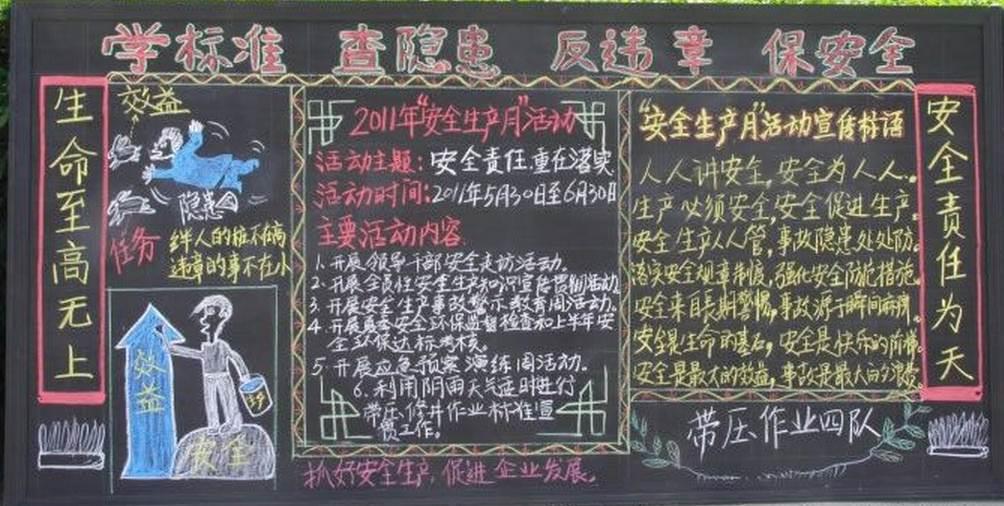 学标准 查隐患 反违章 保安全
生命至高无上
效益
隐患
任务
绊人的桩不在高
违章的事不在小
效益
安全
2011年“安全生产月”活动
活动主题:安全责任,重在落实
活动时间:2011年5月30日至6月30日
主要活动内容
1、开展领导干部安全走访活动。
2、开展全员性安全生产知识宣传贯彻活动
3、开展安全生产事故警示教育周活动。
4、开展夏季安全环保监督检查和上半年安
全环保达标考核。
5、开展应急预案演练周活动。
6、利用阴雨天气适时进行
带压修井作业标准宣
贯工作。
抓好安全生产,促进企业发展。
“安全生产月”活动宣传标语
人人讲安全,安全为人人。
生产必须安全,安全促进生产。
安全生产人人管,事故隐患处处防。
落实安全规章制度,强化安全防范措施。
安全来自长期警惕,事故源于瞬间麻痹。
安全是生命的基石,安全是快乐的阶梯。
安全是最大的效益,事故是最大的浪费。
带压作业四队
安全责任为天